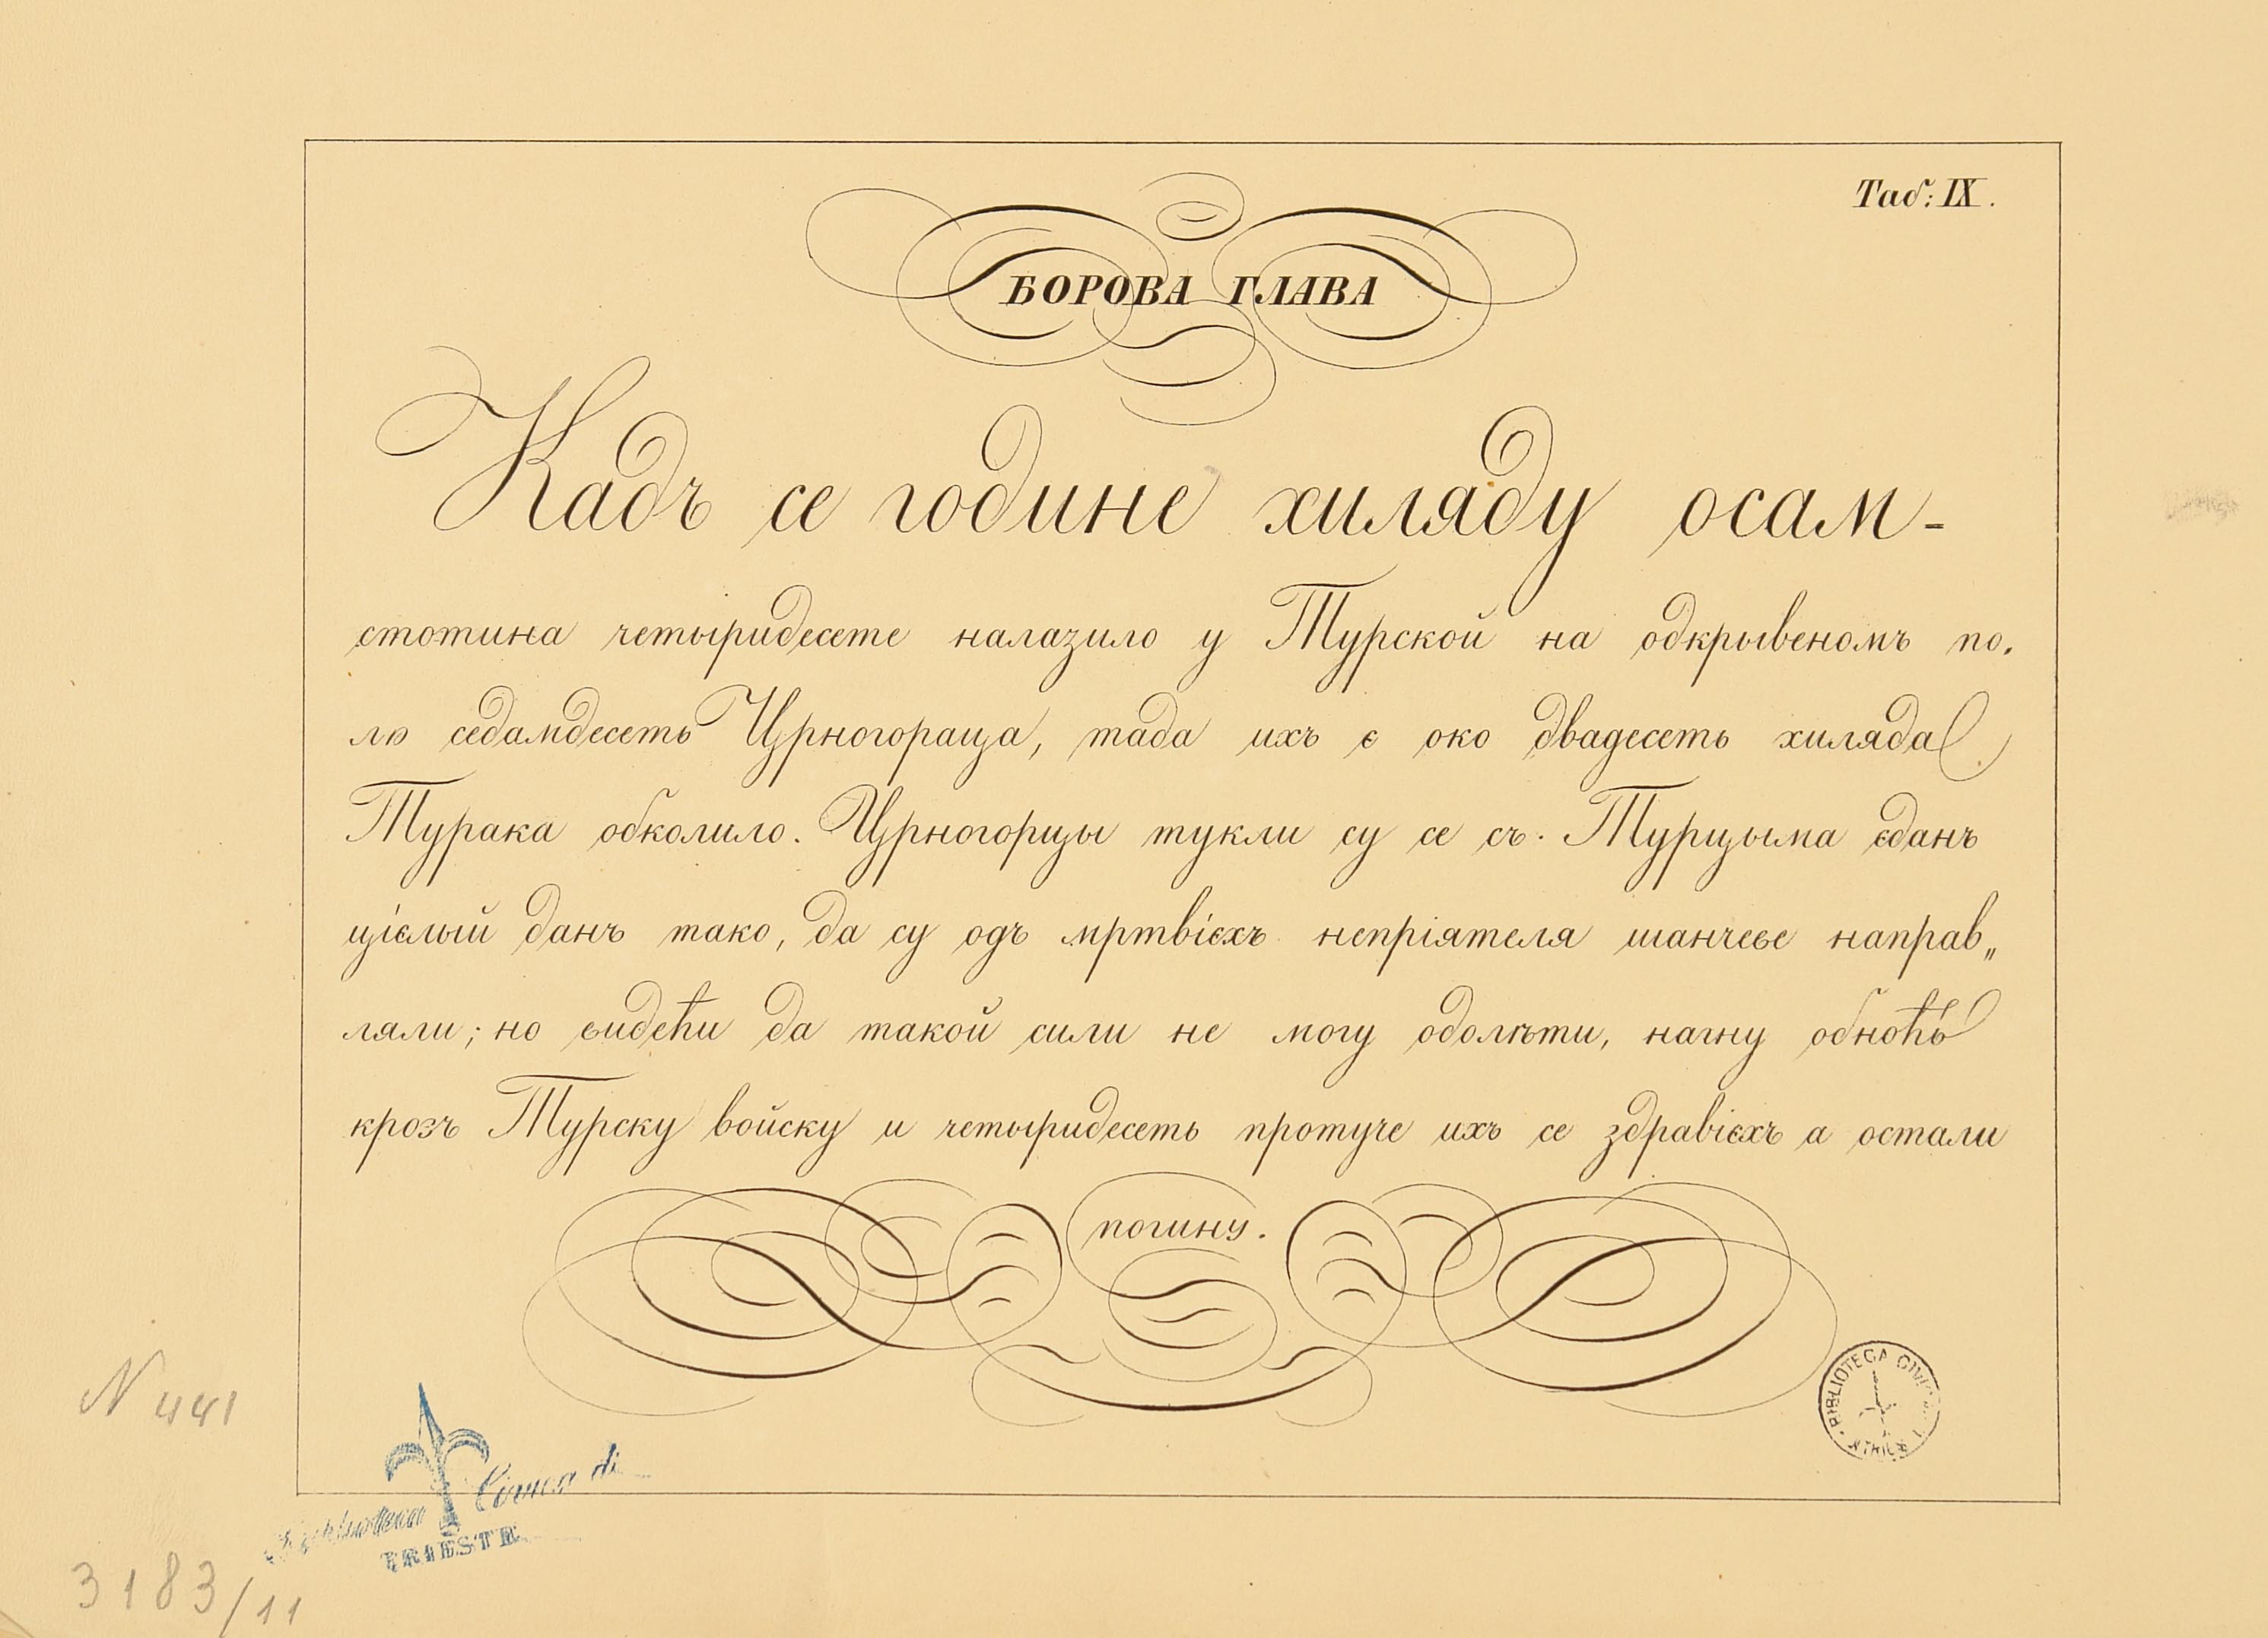 Таб: IX.
БОРОВА ГЛАВА
Кадъ се године хиляду осам-
стотина четыридесете налазило у Турской на одкрывеномъ по.
лю седамдесеть Црногораца, тада ихъ є око двадесеть хиляда
Турака обколило. Црногорцы тукли су се съ. Турцыма єданъ
цієлый данъ тако, да су одъ мртвієхъ непріятеля шанчеве направ„
ляли; но видећи да такой сили не могу одолѣти, нагну обноћь
крозъ Турску войску и четыридесеть протуче ихъ се здравієхъ а остали
погину.
BIBLIOTECA CIVICA
N 441
Biblioteca Civica di
TRIESTE
3183/11